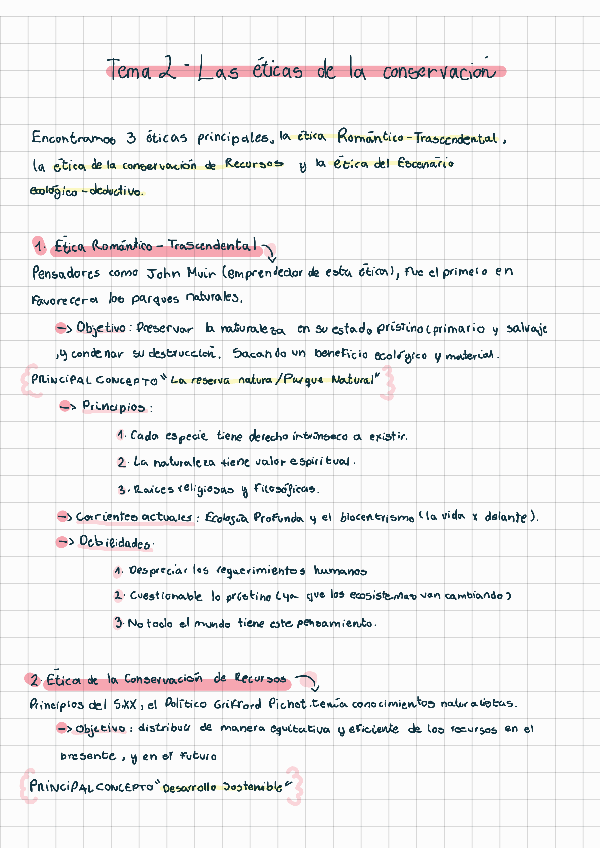 Tema 2 - Las éticas de la conservación
Encontramos 3 éticas principales, la ética Romántico-Trascendental,
la ética de la conservación de Recursos y la ética del Escenario
ecológico-deductivo.
1. Ética Romántico - Trascendental
Pensadores como John Muir (emprendedor de esta ética), fue el primero en
favorecer a los parques naturales.
-> Objetivo: Preservar la naturaleza en su estado prístino (primario y salvaje
,y condenar su destrucción. Sacando un beneficio ecológico y material.
PRINCIPAL CONCEPTO "La reserva natura/Parque Natural"
-> Principios:
1. Cada especie tiene derecho intrínseco a existir.
2. La naturaleza tiene valor espiritual.
3. Raíces religiosas y filosóficas.
-> Corrientes actuales: Ecología Profunda y el biocentrismo (la vida x delante).
-> Debilidades:
1. Despreciar los requerimientos humanos
2. Cuestionable lo prístino (ya que los ecosistemas van cambiando)
3. No todo el mundo tiene este pensamiento.
2. Ética de la Conservación de Recursos
Principios del S.XX, el Político Grifford Pichot. tenía conocimientos naturalistas.
-> Objetivo: distribuir de manera equitativa y eficiente de los recursos en el
presente, y en el futuro
PRINCIPAL CONCEPTO "Desarrollo Sostenible"